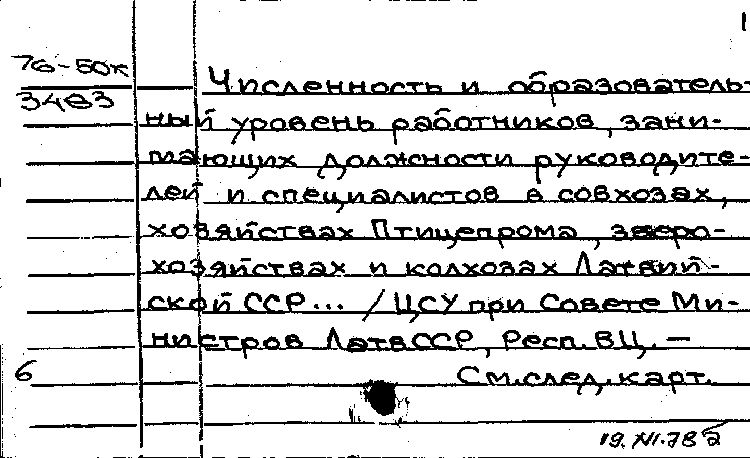 1
76-50к
3483
Численность и образователь-
ный уровень работников, зани-
мающих должности руководите-
лей и специалистов в совхозах,
хозяйствах Птицепрома, зверо-
хозяйствах и колхозах Латвий-
ской ССР... /ЦСУ при Совете Ми-
нистров ЛатвССР, Респ. ВЦ. —
б
См. след. карт.
19.XII.78